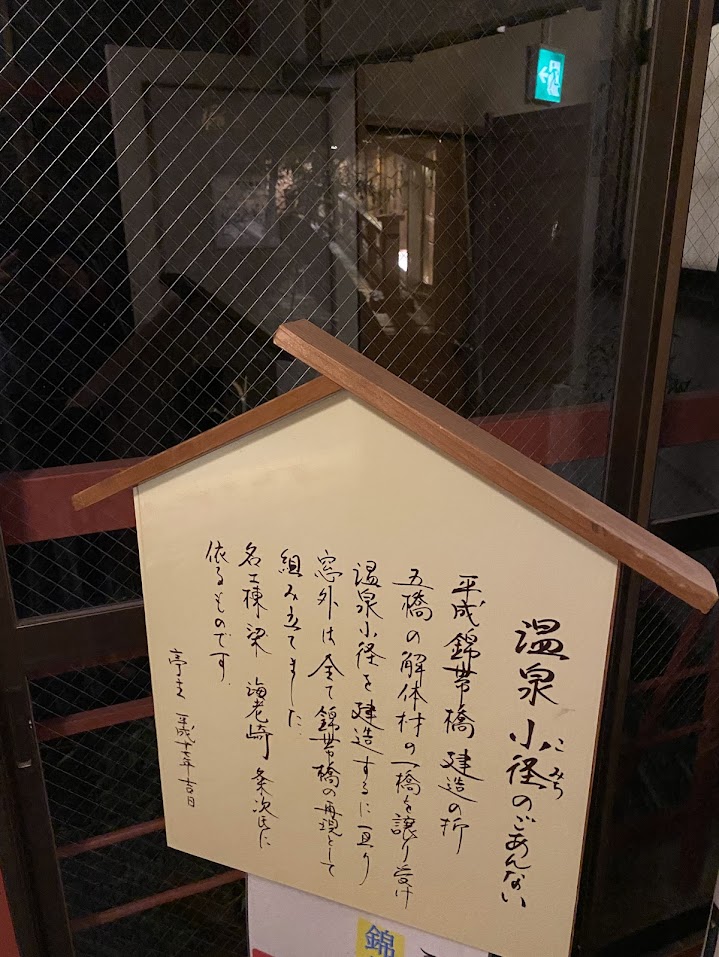 温泉小径のごあんない
こみち
平成錦帯橋建造の折
五橋の解体材の一橋を譲り受け
温泉小径を建造するに至り
窓外は全て錦帯橋の再現として
組み立てました.
名工棟梁 海老崎粂次氏に
依るものです.
亭主 平成十七年吉日
錦